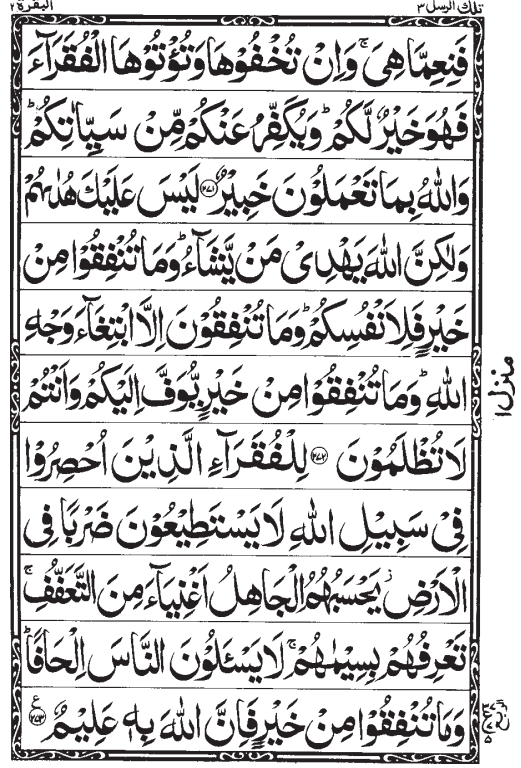 تلك الرسل ٣
البقرة ٢
فَنِعِمَّا هِيَ ۚ وَاِنْ تُخْفُوْهَا وَتُؤْتُوْهَا الْفُقَرَآءَ
فَهُوَ خَيْرٌ لَّكُمْ ؕ وَيُكَفِّرُ عَنْكُمْ مِّنْ سَيِّاٰتِكُمْ ؕ
وَاللّٰهُ بِمَا تَعْمَلُوْنَ خَبِيْرٌ ﴿۲۷۱﴾ لَيْسَ عَلَيْكَ هُدٰىهُمْ
وَلٰكِنَّ اللّٰهَ يَهْدِىْ مَنْ يَّشَآءُ ؕ وَمَا تُنْفِقُوْا مِنْ
خَيْرٍ فَلِاَنْفُسِكُمْ ؕ وَمَا تُنْفِقُوْنَ اِلَّا ابْتِغَآءَ وَجْهِ
اللّٰهِ ؕ وَمَا تُنْفِقُوْا مِنْ خَيْرٍ يُّوَفَّ اِلَيْكُمْ وَاَنْتُمْ
لَا تُظْلَمُوْنَ ﴿۲۷۲﴾ لِلْفُقَرَآءِ الَّذِيْنَ اُحْصِرُوْا
فِىْ سَبِيْلِ اللّٰهِ لَا يَسْتَطِيْعُوْنَ ضَرْبًا فِى
الْاَرْضِ ۫ يَحْسَبُهُمُ الْجَاهِلُ اَغْنِيَآءَ مِنَ التَّعَفُّفِ ۚ
تَعْرِفُهُمْ بِسِيْمٰهُمْ ۚ لَا يَسْـَٔلُوْنَ النَّاسَ اِلْحَافًا ؕ
وَمَا تُنْفِقُوْا مِنْ خَيْرٍ فَاِنَّ اللّٰهَ بِهٖ عَلِيْمٌ ﴿۲۷۳﴾ ع
منزل ١